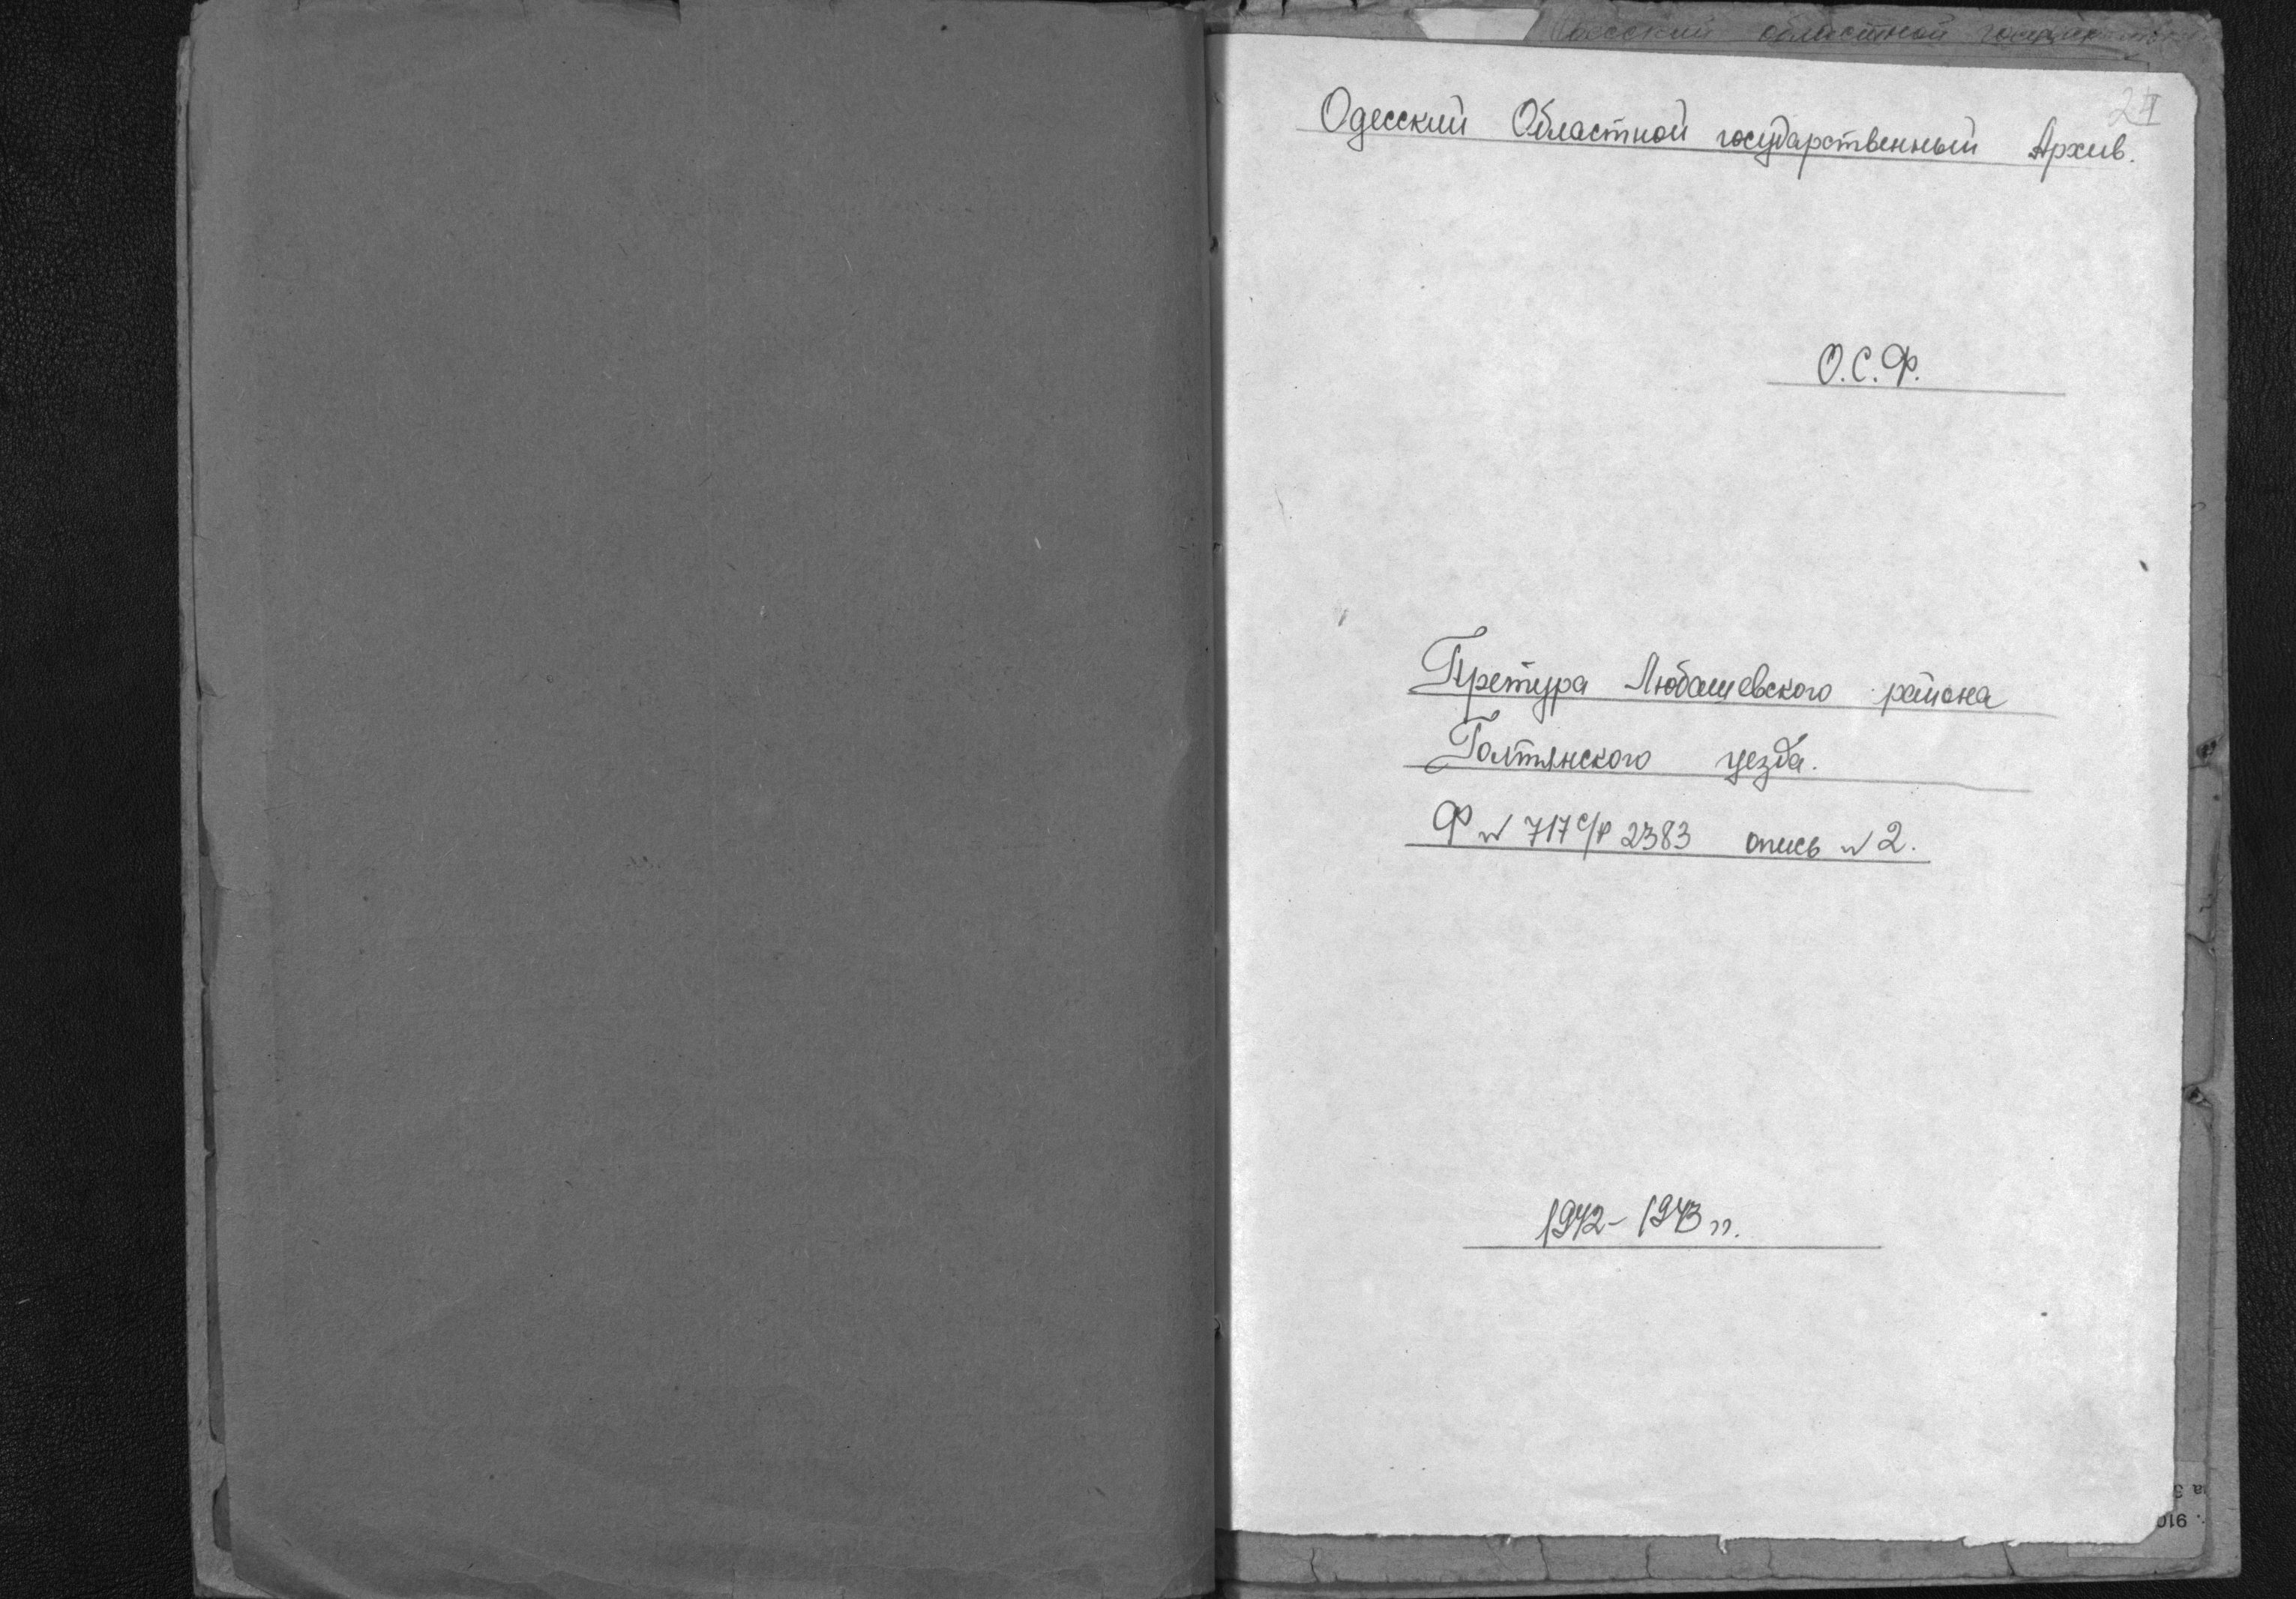 Одесский областной
Одесский Областной государственный Архив.
О.С.Ф.
Претура Любашевского района
Голтянского уезда.
Ф № 717 с/Р 2383 опись № 2.
1942-1943 гг.